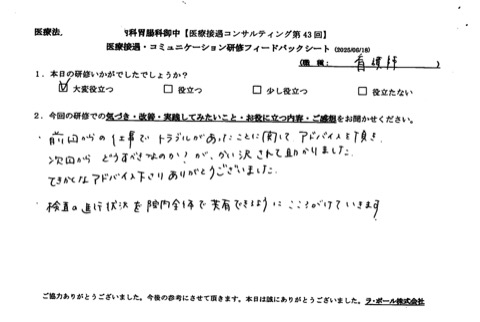 医療法 科胃腸科御中【医療接遇コンサルティング第43回】
医療接遇・コミュニケーション研修フィードバックシート (2025/06/18)
(職種: 看護師 )
1.本日の研修いかがでしたでしょうか?
☑ 大変役立つ □ 役立つ □ 少し役立つ □ 役立たない
2.今回の研修での気づき・改善・実践してみたいこと・お役に立つ内容・ご感想をお聞かせください。
・前回からの仕事でトラブルがあったことに関して アドバイスを頂き、
次回から どうすべきなのか?が、かい決されて助かりました。
てきかくなアドバイス下さり ありがとうございました。
・検査の進行状況を院内全体で共有できるように こころがけていきます
ご協力ありがとうございました。今後の参考にさせて頂きます。本日は誠にありがとうございました。ラ・ポール株式会社